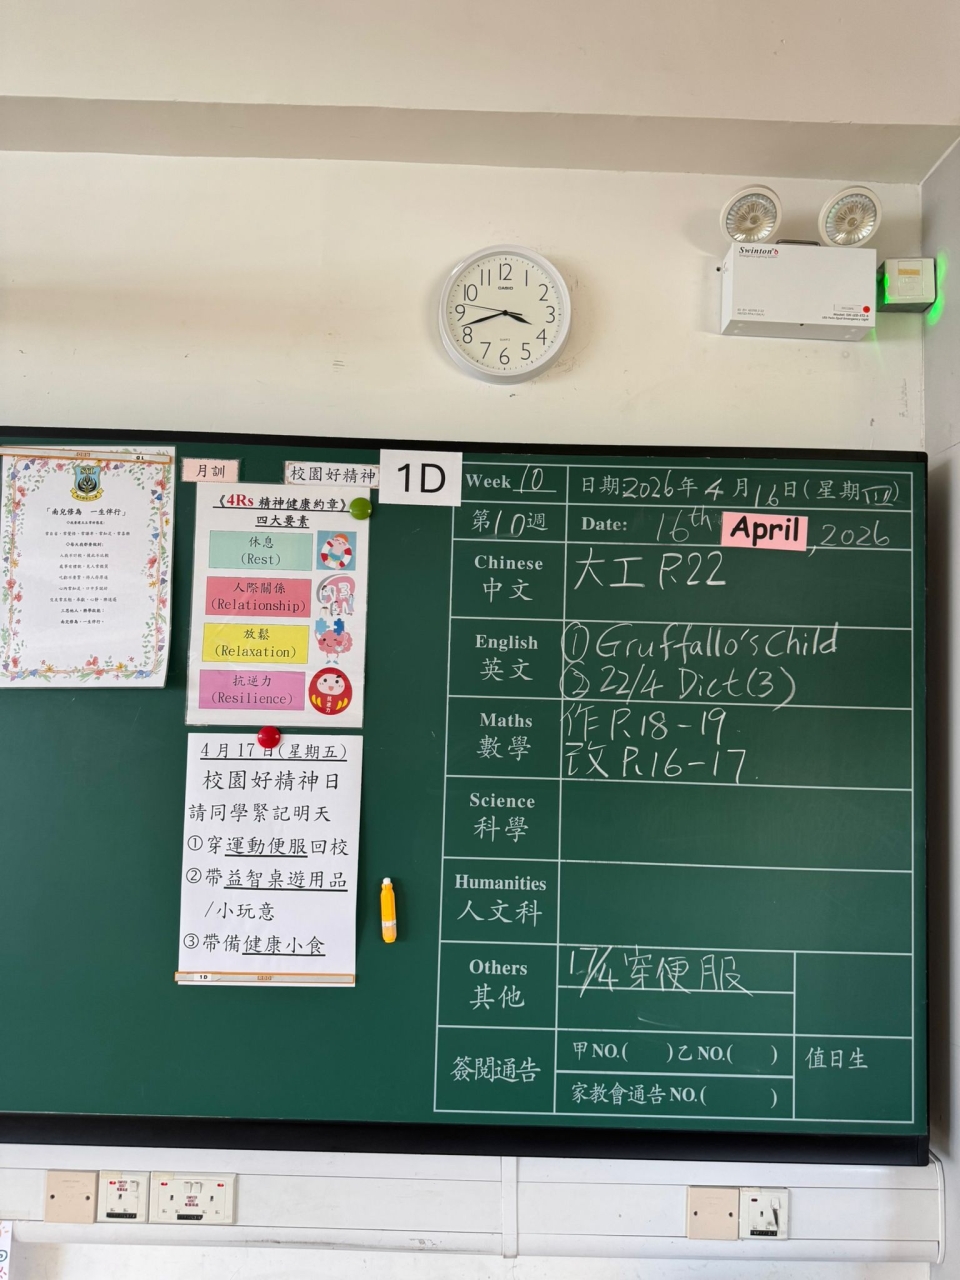 12
1
2
3
4
5
6
7
8
9
10
11
CASIO
QUARTZ
Swinton's
「南兒修為 一生伴行」
月訓
校園好精神
1D
《4Rs 精神健康約章》
四大要素
休息
(Rest)
人際關係
(Relationship)
放鬆
(Relaxation)
抗逆力
(Resilience)
4月17日(星期五)
校園好精神日
請同學緊記明天
①穿運動便服回校
②帶益智桌遊用品
/小玩意
③帶備健康小食
1D
Week 10
日期2026年4月16日(星期四)
第10週
Date: 16th April, 2026
Chinese
中文
大工 P.22
English
英文
① Gruffallo's Child
② 22/4 Dict(3)
Maths
數學
作 P.18-19
改 P.16-17
Science
科學
Humanities
人文科
Others
其他
17/4 穿便服
簽閱通告
甲NO.( )乙NO.( )
家教會通告NO.( )
值日生